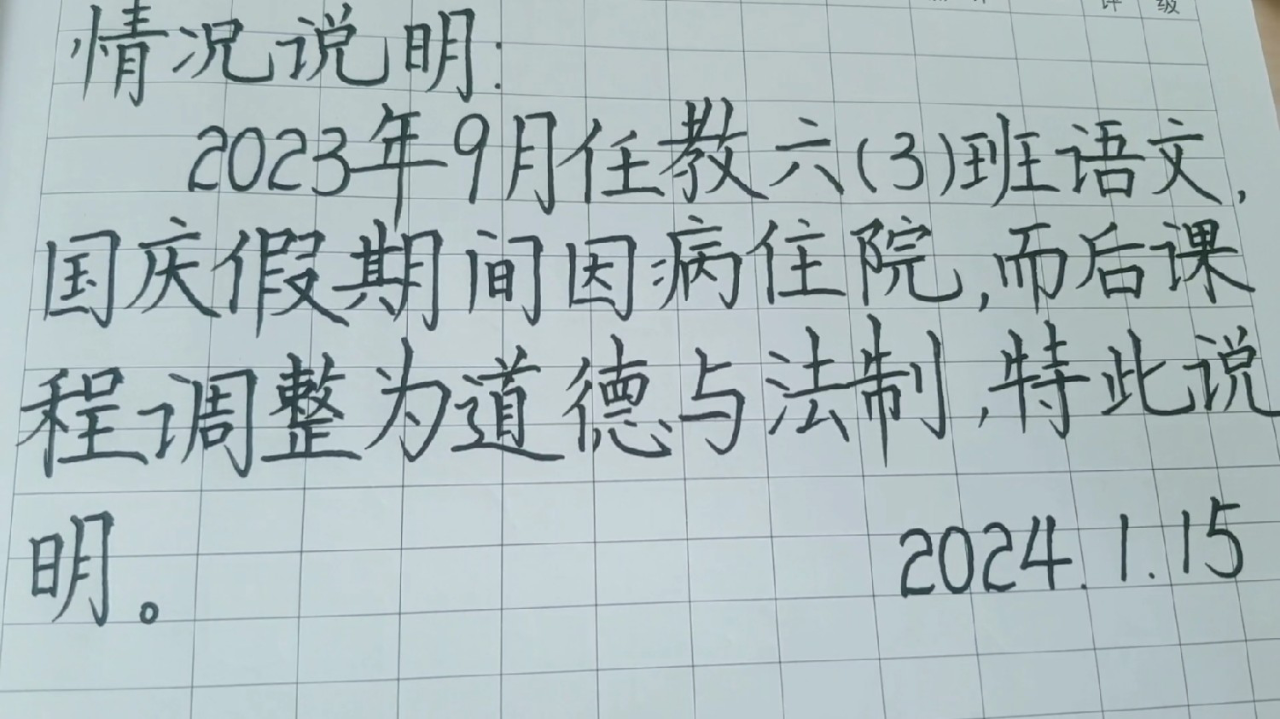 评 级
情况说明:
2023年9月任教六(3)班语文,
国庆假期间因病住院,而后课
程调整为道德与法制,特此说
明。 2024.1.15